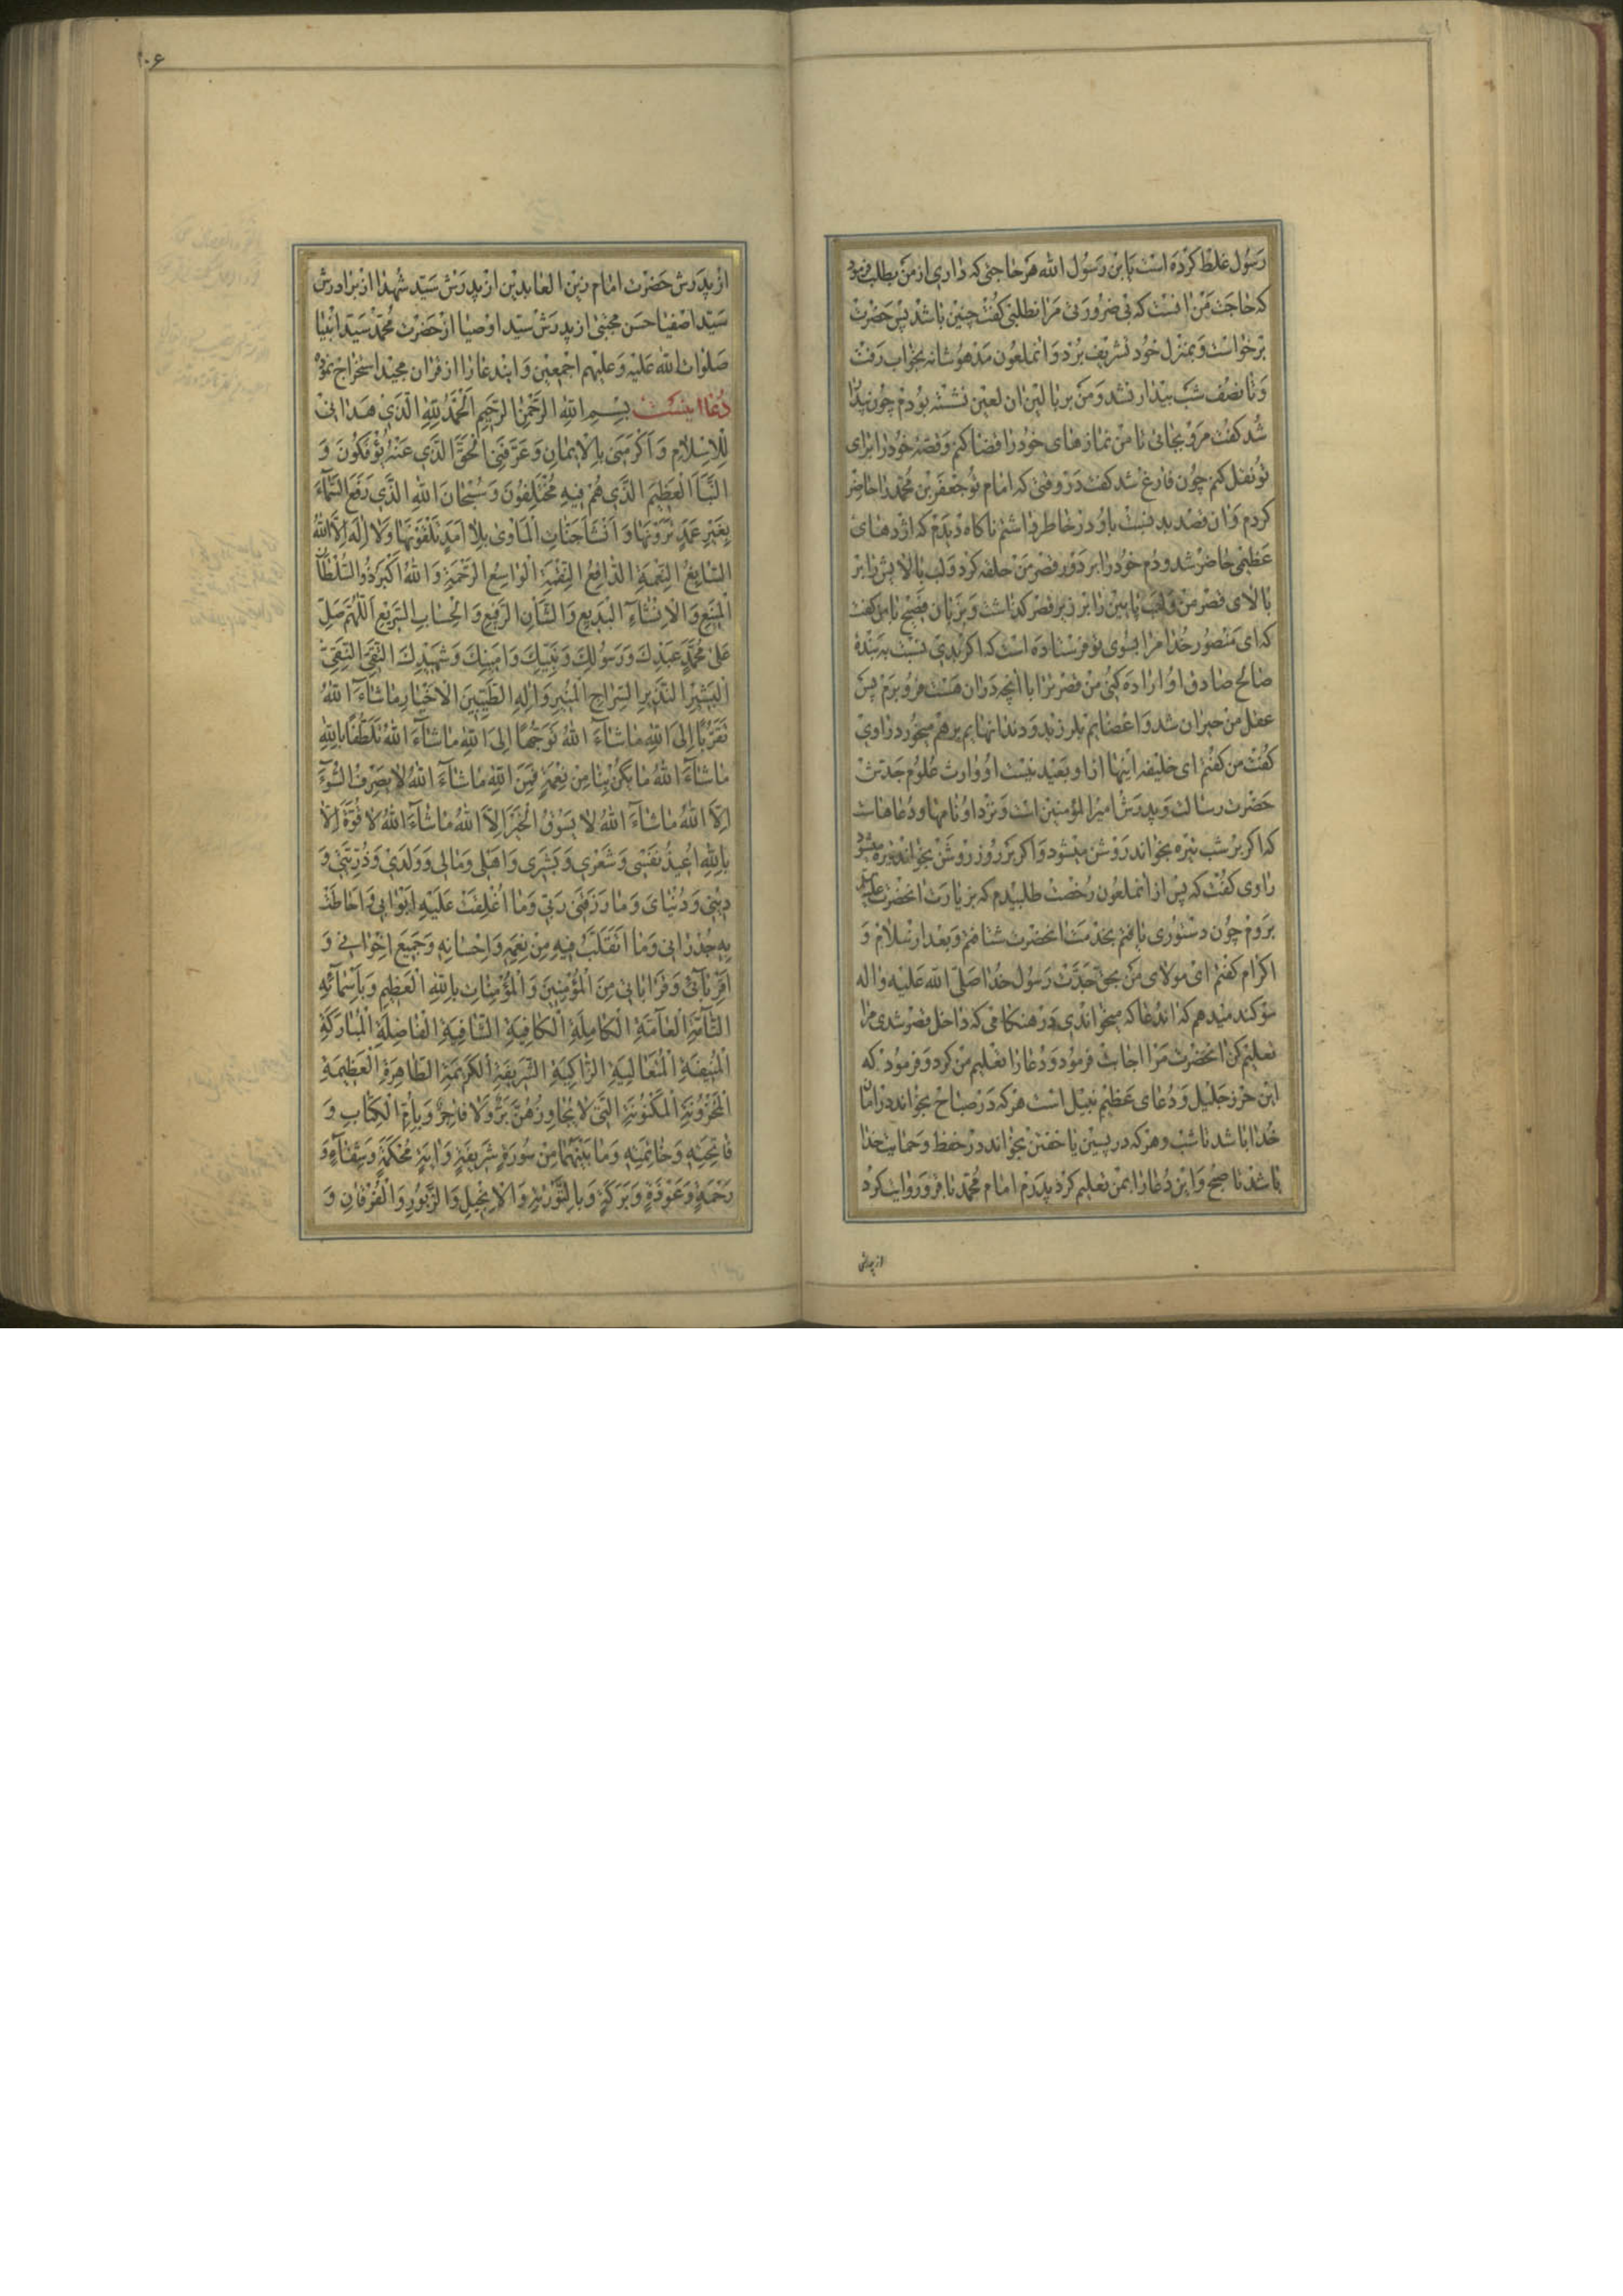 رسول غلط کرده است یابن رسول الله هر حاجتی که داری از من بطلب فرمود
که حاجت من انست که بی ضرورتی مرا نطلبی کفت چنین باشد پس حضرت
برخواست و بمنزل خود تشریف برد و انملعون مدهوشانه بخواب رفت
و تا نصف شب بیدار نشد و من بر بالین ان لعین نشسته بودم چون بیدار
شد کفت مرو بجائی تا من نمازهای خود را قضا کنم و قصه خود را برای
تو نقل کنم چون فارغ شد کفت در وقتی که امام تو جعفر بن محمد را حاضر
کردم و ان قصد بد نسبت باو در خاطر داشتم ناکاه دیدم که اژدهای
عظیمی حاضر شد و دم خود را بر دور قصر من حلقه کرد و لب بالایش را بر
بالای قصر من و لب پایین را بر زیر قصر کذاشت و بزبان فصیح با من کفت
که ای منصور خدا مرا بسوی تو فرستاده است که اکر بدی نسبت به بنده
صالح صادق او اراده کنی من قصر ترا با انچه در ان هست فرو برم پس
عقل من حیران شد و اعضایم بلرزید و دندانهایم برهم میخورد راوی
کفت من کفتم ای خلیفه اینها از او بعید نیست او وارث علوم جدش
حضرت رسالت و پدرش امیر المؤمنین است و نزد او نامها و دعاهاست
که اکر بر شب تیره بخواند روشن میشود و اکر بر روز روشن بخواند تیره میشود
راوی کفت که پس از انملعون رخصت طلبیدم که بزیارت انحضرت علیه السلام
بروم چون دستوری یافتم بخدمت انحضرت شتافتم و بعد از سلام و
اکرام کفتم ای مولای من بحق جدت رسول خدا صلی الله علیه و اله
سوکند میدهم که اندعا که میخواندی در هنکامی که داخل قصر شدی مرا
تعلیم کن انحضرت مرا اجابت فرمود و دعا را تعلیم من کرد و فرمود که
این حرز جلیل و دعای عظیم نبیل است هر که در صباح بخواند در امان
خدا باشد تا شب و هر که در پسین یا خفتن بخواند در حفظ و حمایت خدا
باشد تا صبح و این دعا را بمن تعلیم کرد پدرم امام محمد باقر و روایت کرد
از پدرش
۱۰۶
از پدرش حضرت امام زین العابدین از پدرش سید شهدا از برادرش
سید اصفیا حسن مجتبی از پدرش سید اوصیا از حضرت محمد سید انبیا
صلوات الله علیه و علیهم اجمعین و ایندعا را از قران مجید استخراج نموده
دعا اینست بِسمِ اللهِ الرَّحمنِ الرَّحیمِ اَلحَمدُ لِلّهِ الَّذی هَدانی
لِلاِسلامِ وَ اَکرَمَنی بِالایمانِ وَ عَرَّفَنِی الحَقَّ الَّذی عَنهُ یُؤفَکُونَ وَ
النَّبَاَ العَظیمَ الَّذی هُم فیهِ مُختَلِفُونَ وَ سُبحانَ اللهِ الَّذی رَفَعَ السَّمآءَ
بِغَیرِ عَمَدٍ تَرَونَها وَ اَنشَاَ جَنّاتِ المَاوی بِلا اَمَدٍ تَلقَونَها وَ لا اِلهَ اِلاَّ اللهُ
السّابِغُ النِّعمَةِ الدّافِعُ النِّقمَةِ الواسِعُ الرَّحمَةِ وَ اللهُ اَکبَرُ ذُو السُّلطانِ
المَنیعِ وَ الاِنشآءِ البَدیعِ وَ الشَّاْنِ الرَّفیعِ وَ الحِسابِ السَّریعِ اَللّهُمَّ صَلِّ
عَلی مُحَمَّدٍ عَبدِکَ وَ رَسُولِکَ وَ نَبِیِّکَ وَ اَمینِکَ وَ شَهیدِکَ التَّقِیِّ النَّقِیِّ
البَشیرِ النَّذیرِ السِّراجِ المُنیرِ وَ الِهِ الطَّیِّبینَ الاَخیارِ ماشآءَ اللهُ
تَقَرُّبًا اِلَی اللهِ ماشآءَ اللهُ تَوَجُّهًا اِلَی اللهِ ماشآءَ اللهُ تَلَطُّفًا بِاللهِ
ماشآءَ اللهُ ما یَکُن بِنا مِن نِعمَةٍ فَمِنَ اللهِ ماشآءَ اللهُ لا یَصرِفُ السُّوٓءَ
اِلاَّ اللهُ ماشآءَ اللهُ لا یَسُوقُ الخَیرَ اِلاَّ اللهُ ماشآءَ اللهُ لا قُوَّةَ اِلاّ
بِاللهِ اُعیذُ نَفسی وَ شَعری وَ بَشَری وَ اَهلی وَ مالی وَ وَلَدی وَ ذُرِّیَّتی وَ
دینی وَ دُنیایَ وَ ما رَزَقَنی رَبّی وَ ما اُغلِقَت عَلَیهِ اَبوابی وَ اَحاطَت
بِهِ جُدرانی وَ ما اَتَقَلَّبُ فیهِ مِن نِعَمِهِ وَ اِحسانِهِ وَ جَمیعَ اِخوانی وَ
اَقرِبآئی وَ قَراباتی مِنَ المُؤمِنینَ وَ المُؤمِناتِ بِاللهِ العَظیمِ وَ بِاَسمآئِهِ
التّآمَّةِ العآمَّةِ الکامِلَةِ الکافِیَةِ الشّافِیَةِ الفاضِلَةِ المُبارَکَةِ
المُنیفَةِ المُتَعالِیَةِ الزّاکِیَةِ الشَّریفَةِ الکَریمَةِ الطّاهِرَةِ العَظیمَةِ
المَخزُونَةِ المَکنُونَةِ الَّتی لا یُجاوِزُهُنَّ بَرٌّ وَ لا فاجِرٌ وَ بِاُمِّ الکِتابِ وَ
فاتِحَتِهِ وَ خاتِمَتِهِ وَ ما بَینَهُما مِن سُورَةٍ شَریفَةٍ وَ ایَةٍ مُحکَمَةٍ وَ شِفآءٍ وَ
رَحمَةٍ وَ عَوذَةٍ وَ بَرَکَةٍ وَ بِالتَّورٰیةِ وَ الاِنجیلِ وَ الزَّبُورِ وَ الفُرقانِ وَ